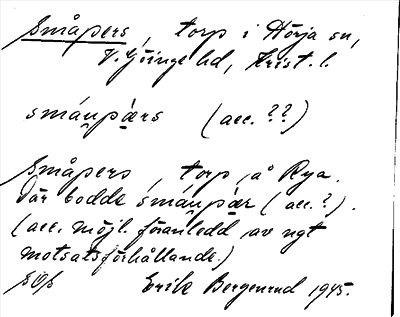 Småpers, torp i Hörja sn,
V. Göinge hd, Krist. l.
småu̯pæ̣rs (acc. ??)
Småpers, torp, å Rya.
Där bodde småu̯pæ̣r (acc. ?).
(acc. möjl. föranledd av ngt
motsatsförhållande.)
Erik Bergenrud 1945.